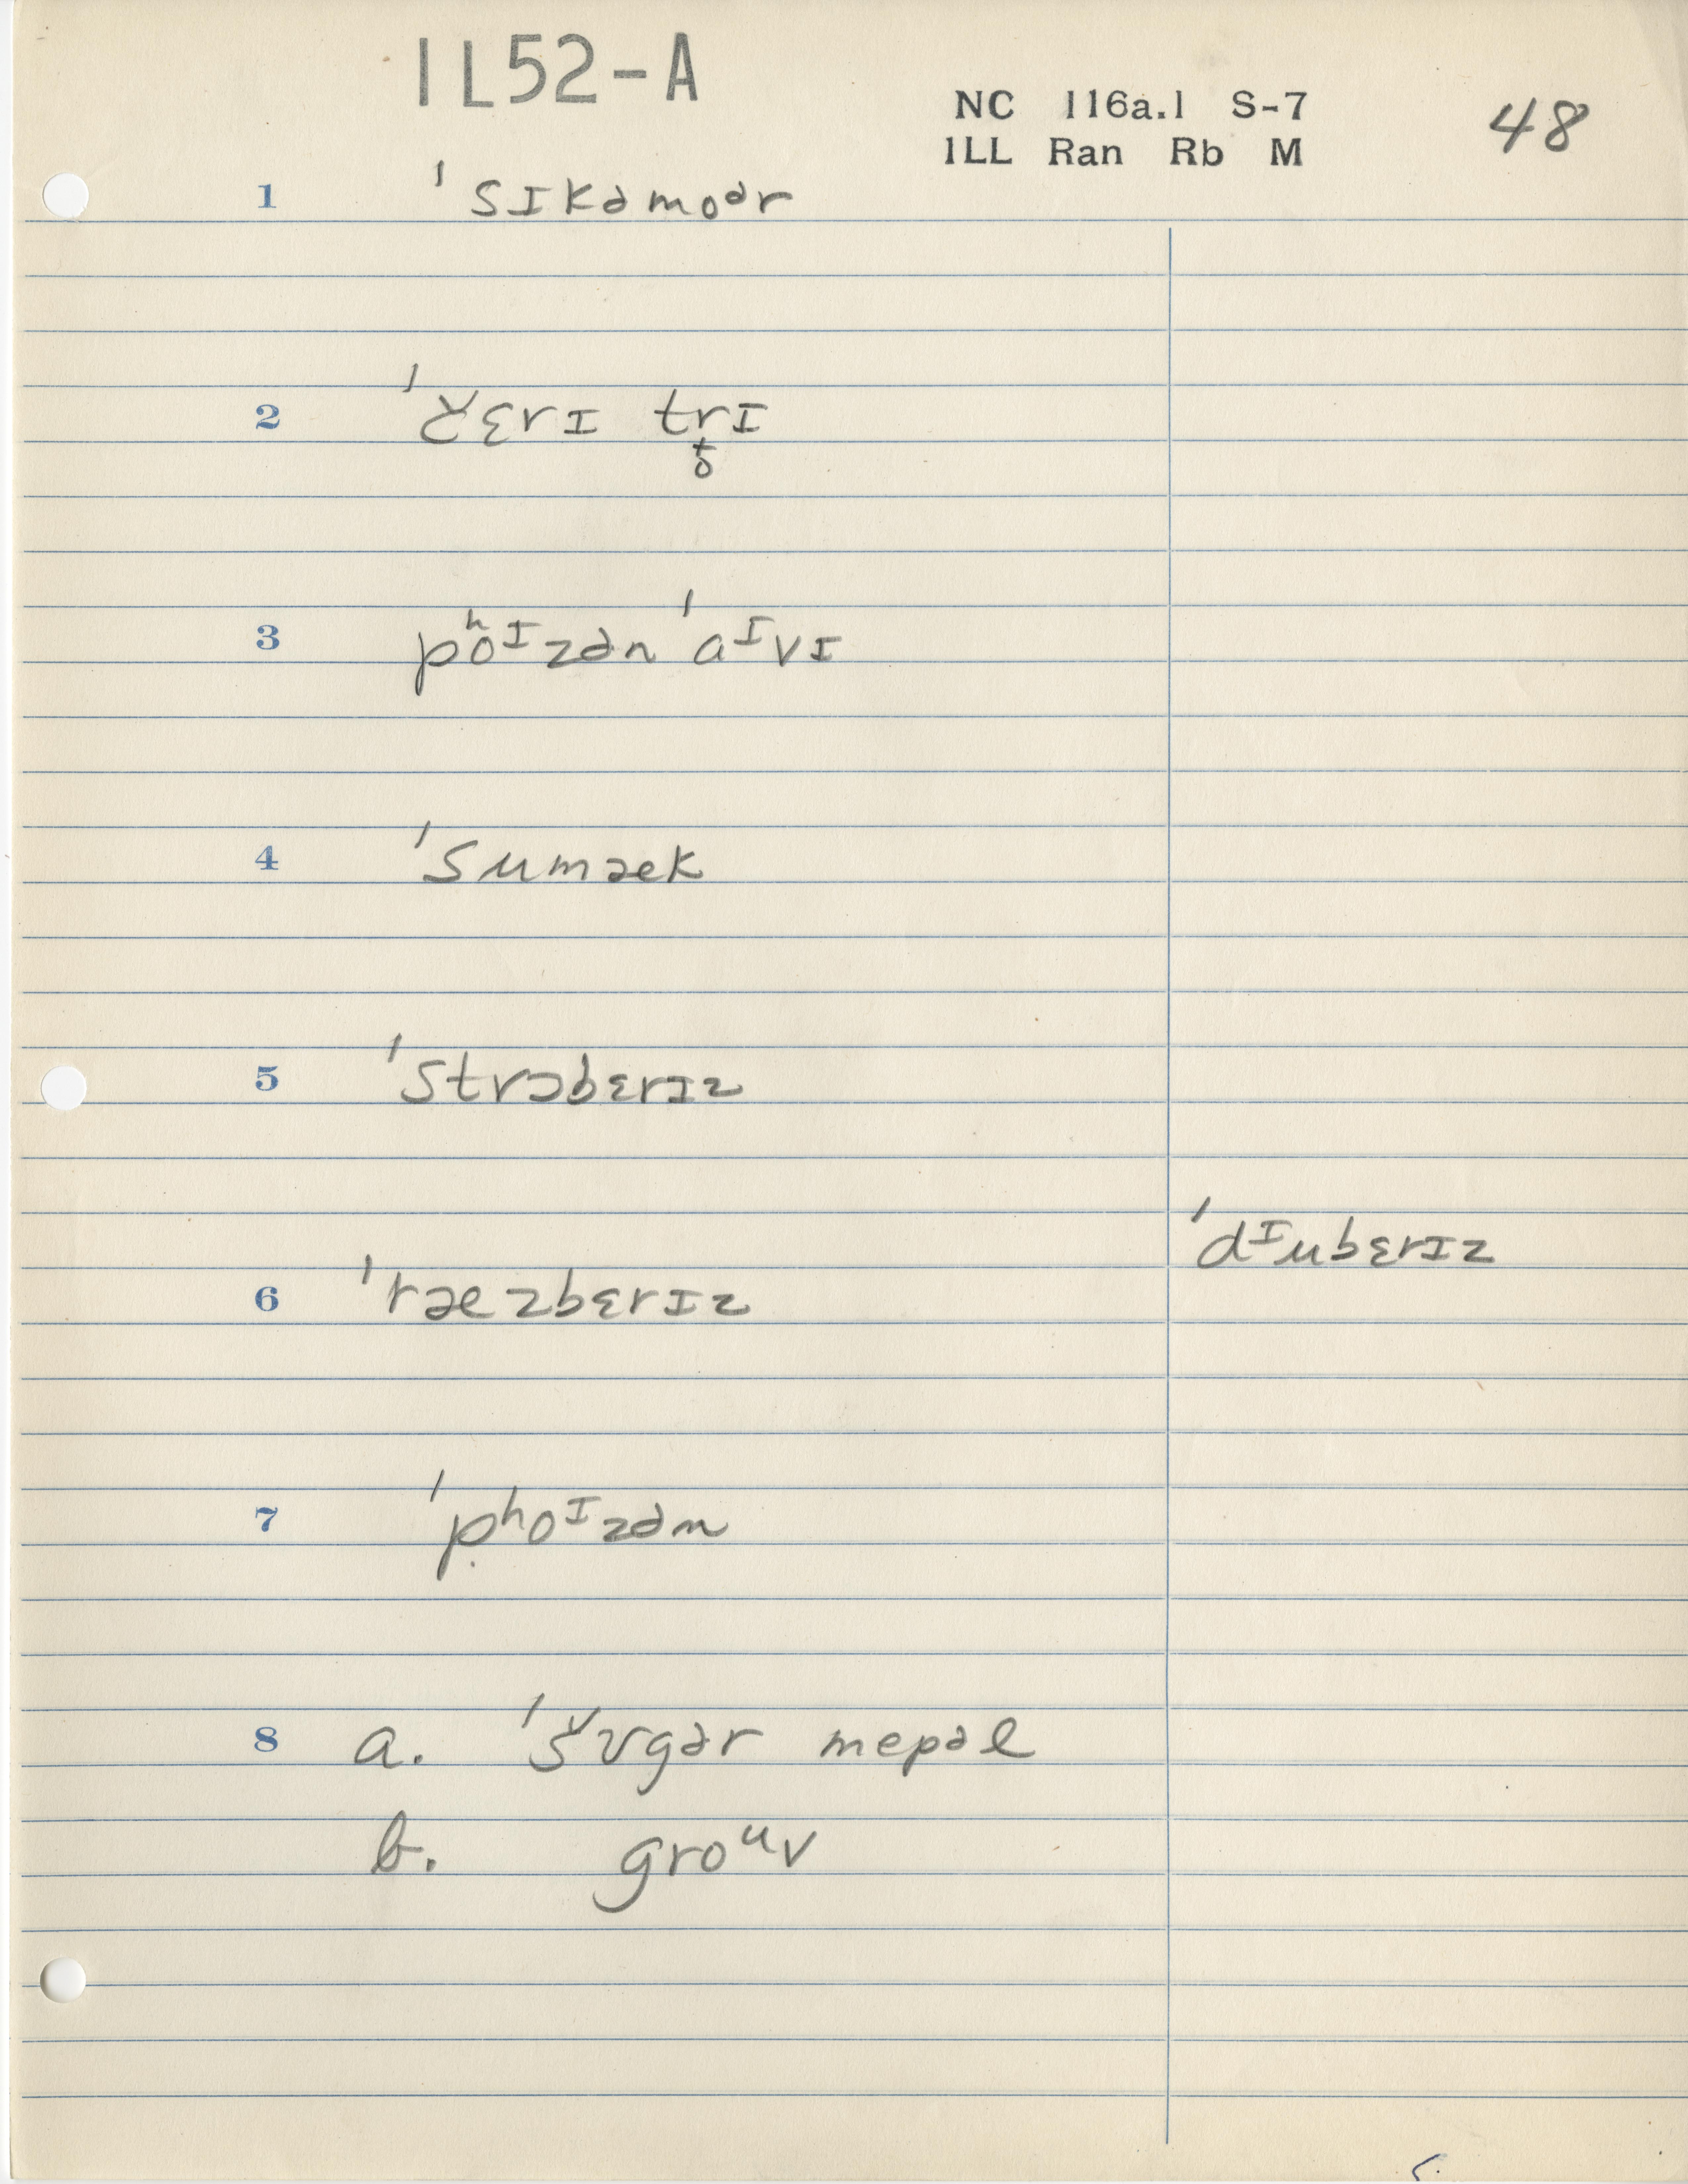 IL52-A
NC 116a.1 S-7
ILL Ran Rb M
48
1 ˈsɪkəmoᵊr
2 ˈčɛrɪ trɪ
3 pʰoᶦzən ˈaᶦvɪ
4 ˈsumæk
5 ˈstrɔbɛrɪz
ˈdᶦubɛrɪz
6 ˈræzbɛrɪz
7 ˈpʰoᶦzən
8 a. ˈšʊgər mepəl
b. groᵘv